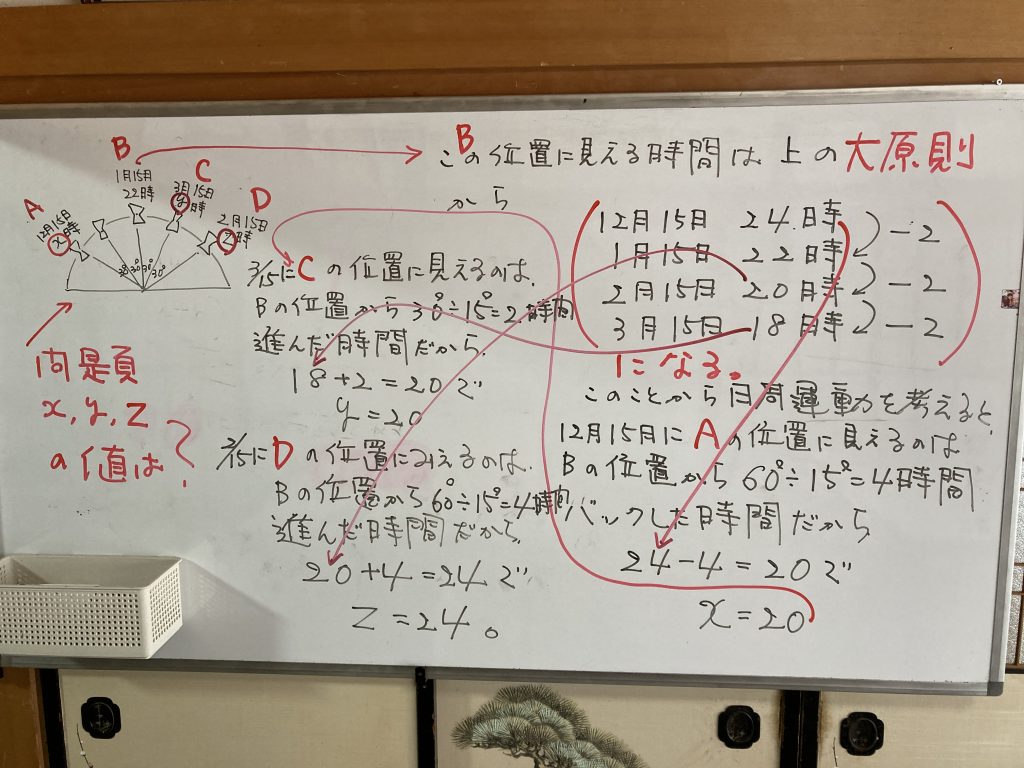 B
1月15日
22時
C
3月15日
y時
D
2月15日
z時
A
12月15日
x時
30° 30° 30° 30°
問題
x, y, z
の値は?
Bこの位置に見える時間は上の大原則
から
12月15日 24時
1月15日 22時
2月15日 20時
3月15日 18時
-2
-2
-2
になる。
このことから日周運動を考えると、
12月15日にAの位置に見えるのは
Bの位置から60°÷15°=4時間
バックした時間だから
24-4=20で
x=20
3/15にCの位置に見えるのは、
Bの位置から30°÷15°=2時間
進んだ時間だから、
18+2=20で
y=20
2/15にDの位置に見えるのは、
Bの位置から60°÷15°=4時間
進んだ時間だから、
20+4=24で
z=24。